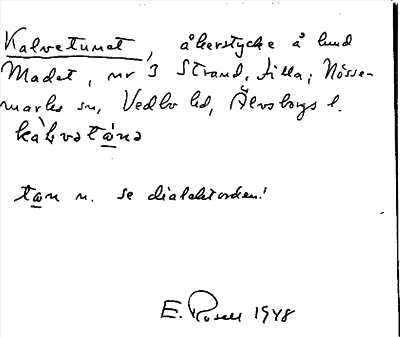 Kalvetunet, åkerstycke å lund
Madet, nr 3 Strand, lilla; Nösse-
marks sn, Vedbo hd, Älvsborgs l.
kàlvətꞷ́nə
tꞷn n. se dialektorden!
E. Rosell 1948